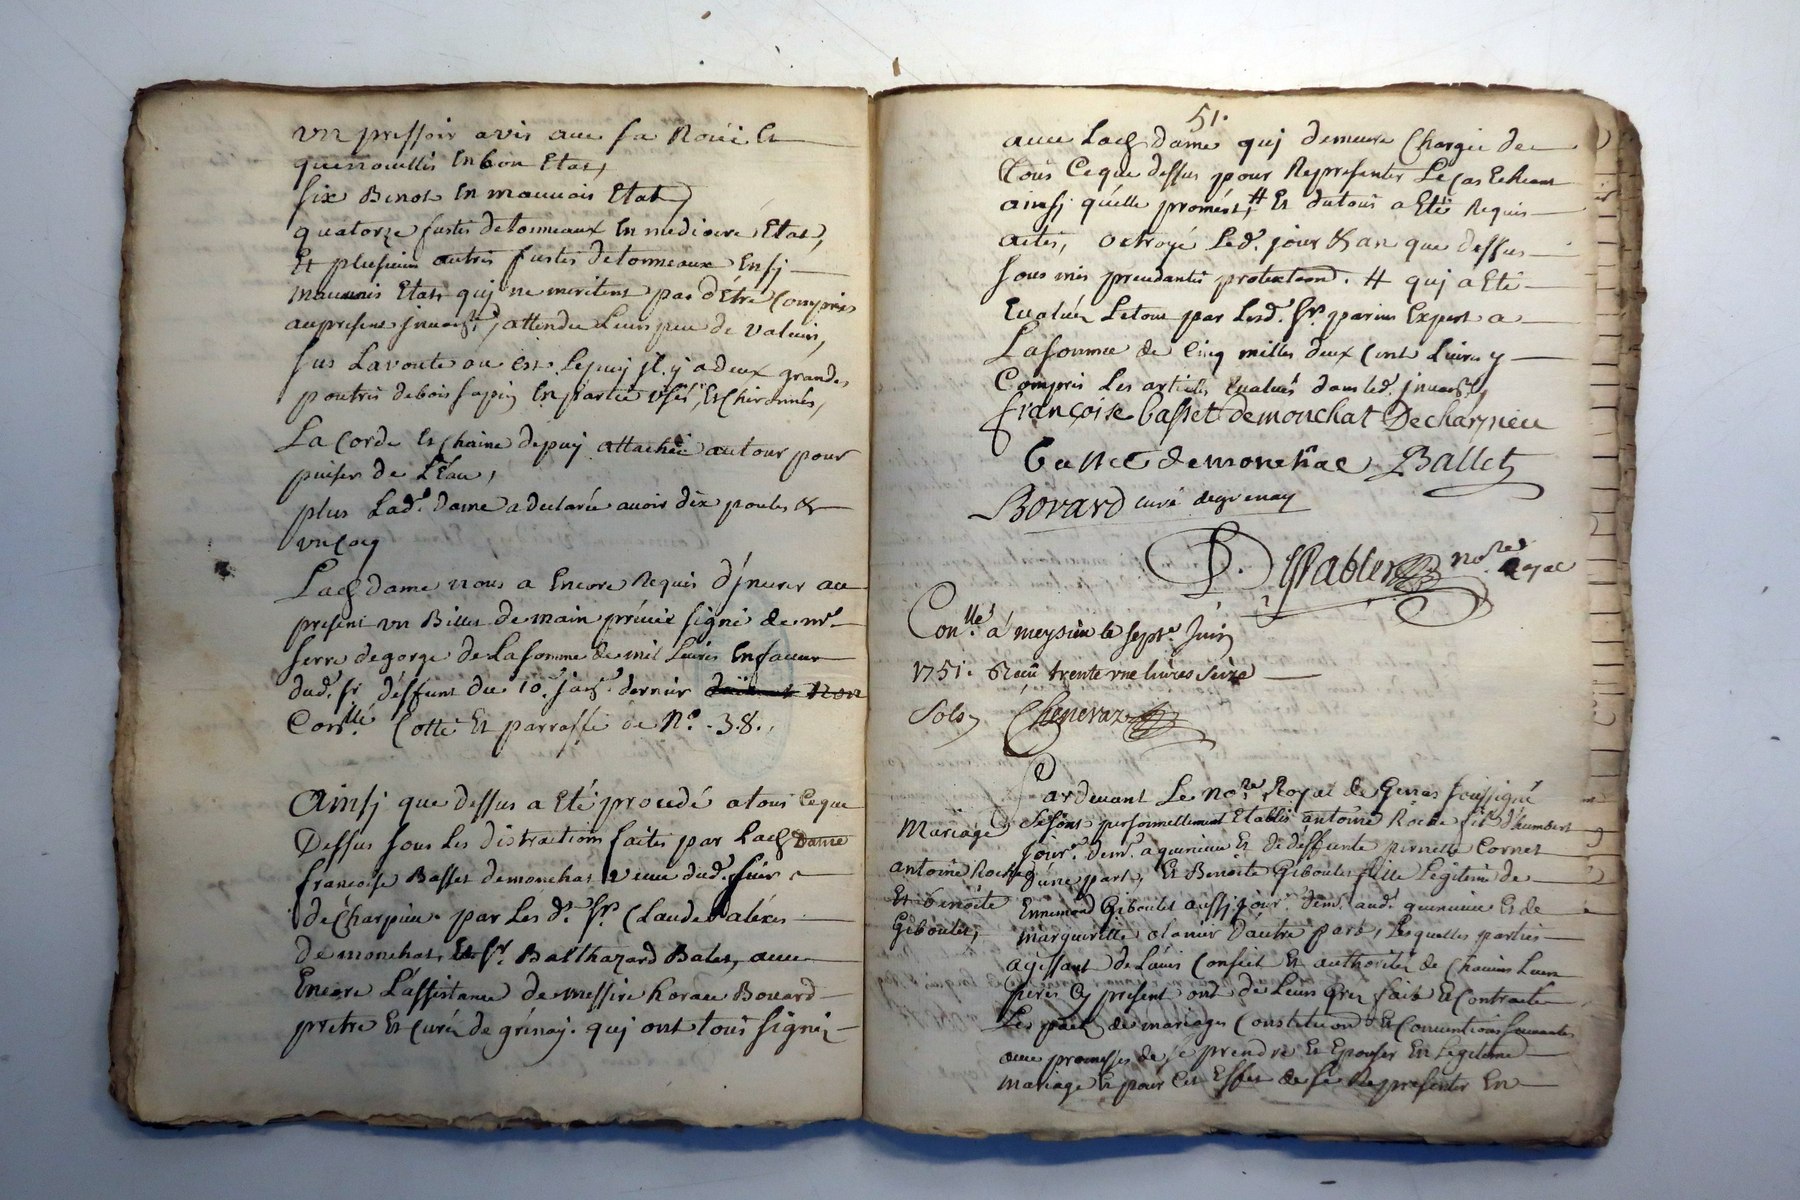 un pressoir a vis avec sa Roüe Et
quenouilles En bon Etat,
six Benots En mauvais Etat
quatorze fustes de tonneaux En mediocre Etat,
Et plusieurs autres fustes de tonneaux En si
mauvais Etats qui ne meritent pas d'Etre Compris
au present Invre, attendu Leurs peu de valeur,
sus La voute ou Est Le puy il y a deux grandes
poutres de bois sapin En partie usés, Et Chironnés,
La Corde Et Chaine de puy attachée au tour pour
puiser de L'Eau,
plus Lade. Dame a declarée avoir dix poules &
un Coq
Lade Dame nous a Encore Requis d'Inserer au
present un Billet de main privée signé de mr.
serre de gorge de La somme de mil Livres En faveur
dud. sr. déffunt du 10e. dernier
Conllé Cotté Et parraffé de No. 38.
Ainsi que dessus a Eté procedé a tous Ceque
Dessus sous Les distractions faites par Lade Dame
francoise Basset demonchat veuve dud. sieur
de Charpieu par Les d. srs. Claude aléxis
De monchat, Et sr. Balthazard Balet, avec
Encore L'assistance de messire horace Bovard
prêtre Et Curé de grénay. qui ont tous signé
51.
avec Lade Dame qui demeure Chargée de
Tous Ceque dessus pour Representer Le Cas Echeant
ainsi qu'élle promést, # Et du tous a Eté Requis
actes, octroyé Led. jour & an que dessus
sous mes precedantes protestaons. # qui a Eté
Evalué Le tous par Lesd. srs. parens Expert a
La somme de Cinq milles deux Cent Livres y
Compris Les articles Evalués dans led. Invre
françoise basset demonchat Decharpieu
basset demonchat Ballet
Bovard curé degrenay
Pabler nore. Royal
Conllé. a meysieu le sept. Juin
1751. Reçu trente une livres seize
Sols, Chenevaz
Pardevant Le nore. Royal de Genas soussigné
Mariage Se sont personnellement Etablis antoine Roche fils d'humbert
jour. dem. a quenieu Et de déffunte pernette Cornet
antoine Roche d'une part, Et Benoite Giboulet fille Legitime de
Et benoite Ennemond Giboulet aussi jour. dem. aud. quenieu Et de
Giboulet, margueritte D'autre part, Lesquelles parties
agissant de L'avis Conseil Et authorité de Chacuns Leurs
peres Cy present ont de Leurs Grez fait Et Contracté
Les pact de mariages Constitution Et Conventions suivantes
avec promesses de se prendre Et Epouser En Legitime
mariage Et pour Cet Effet de se Representer En